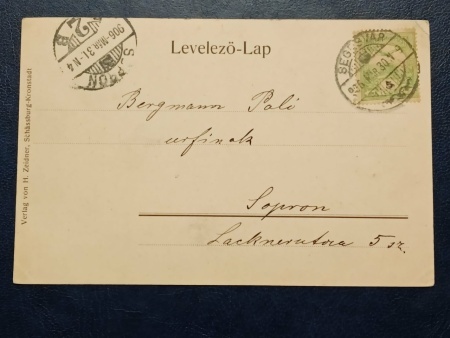 Levelező-Lap
SOPRON
906 MÁR. 31. N 4
SEGESVÁR
Bergmann Pali
urfinak
Sopron
Lacknerutca 5 sz.
Verlag von H. Zeidner, Schässburg-Kronstadt